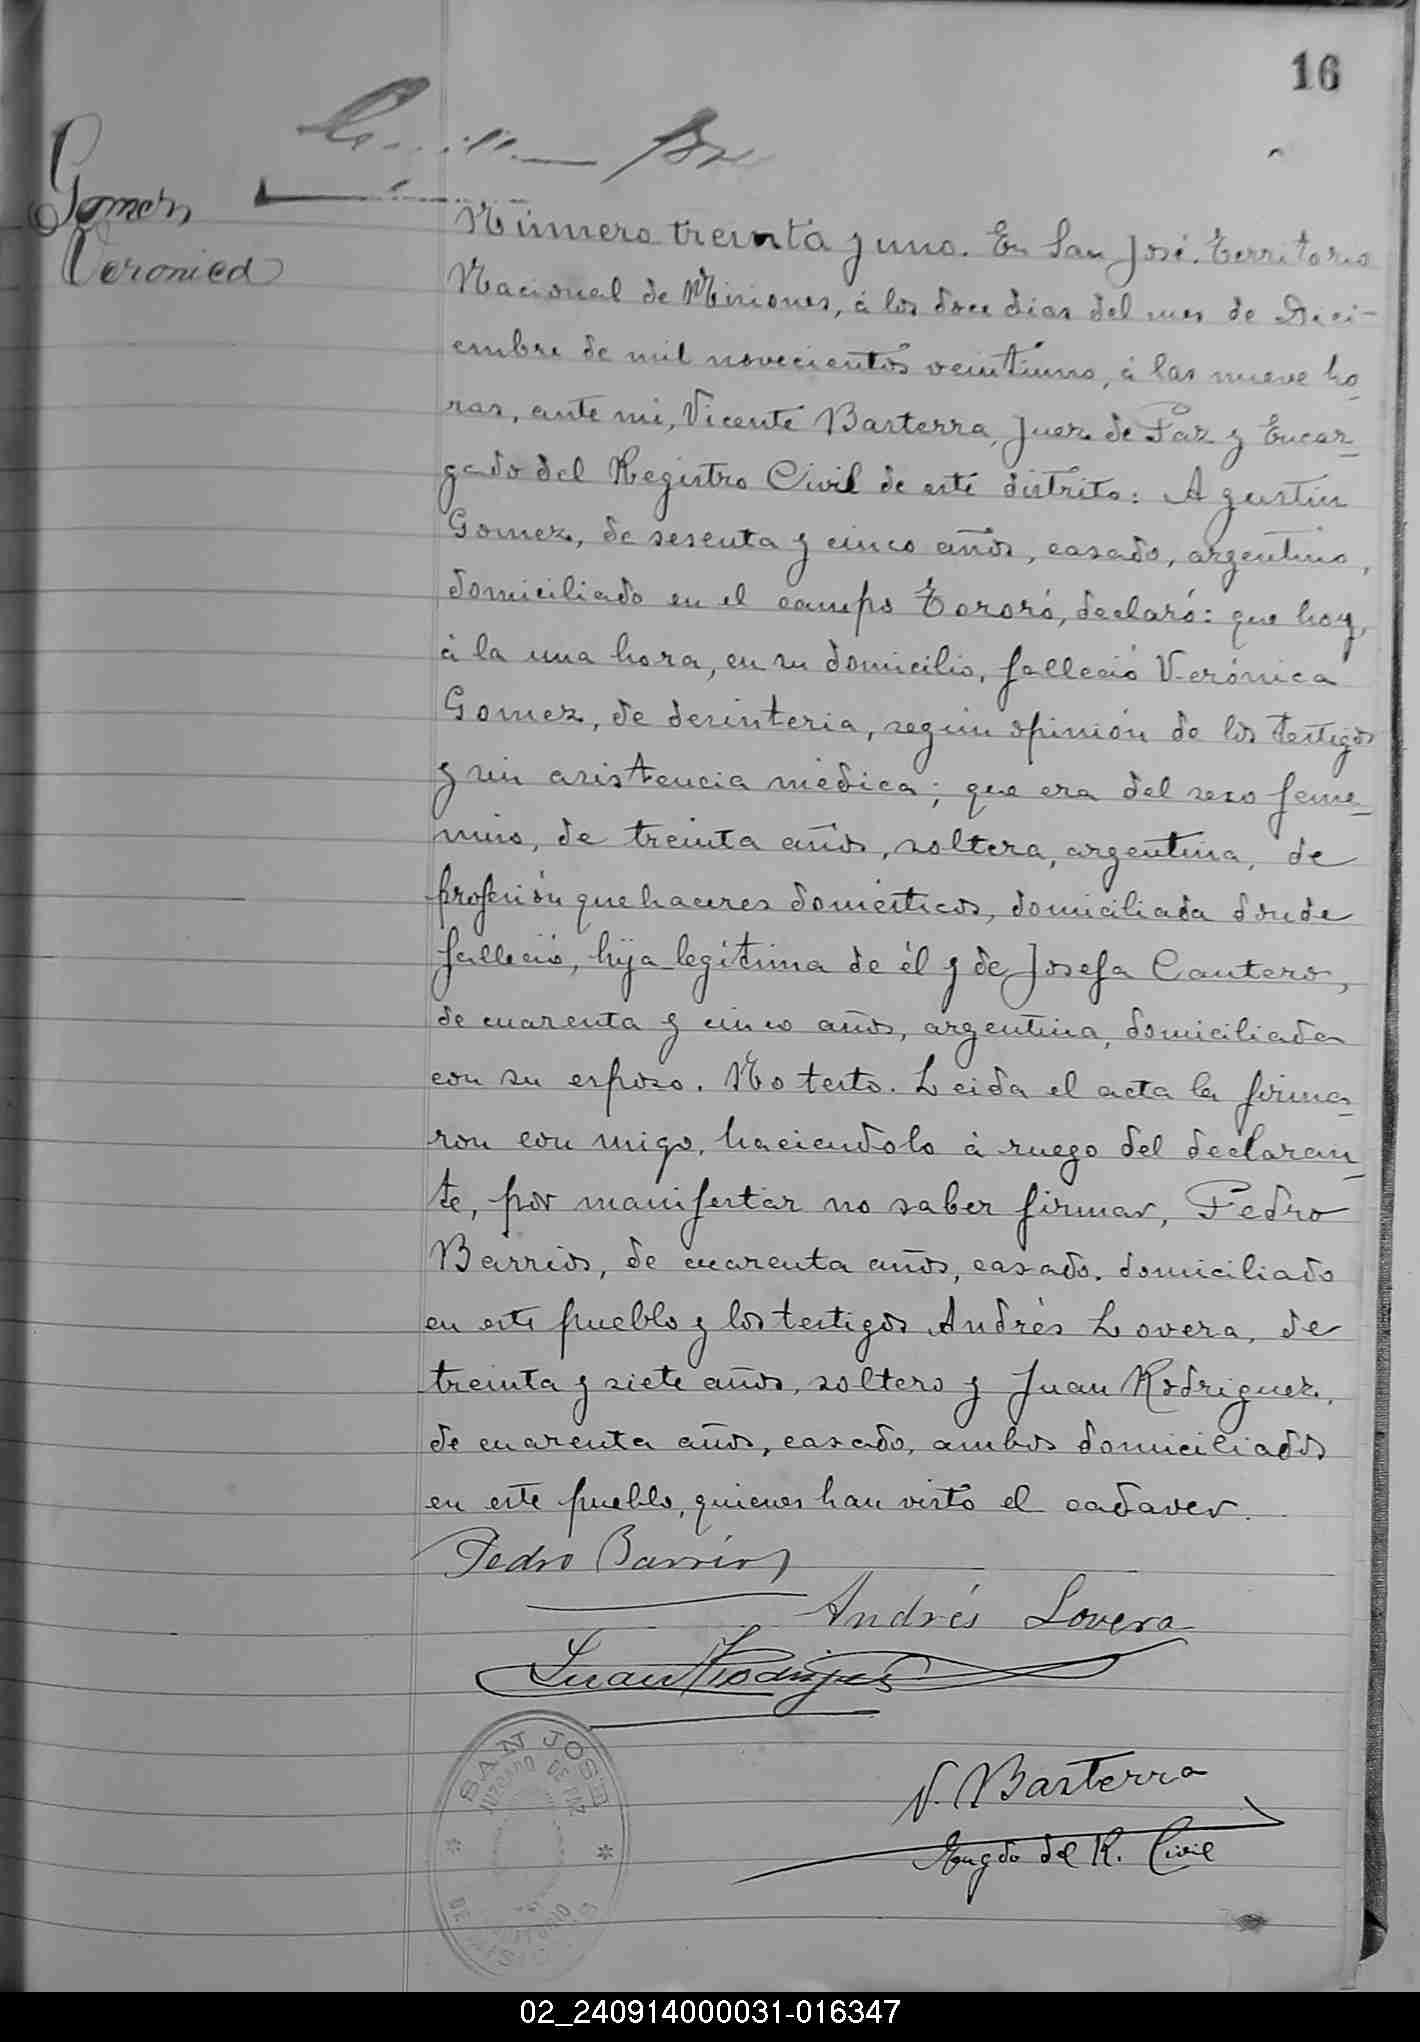 16
Gomez
Veronica
Número treinta y uno. En San José. Territorio
Nacional de Misiones, á los doce dias del mes de Dici-
embre de mil novecientos veintiuno, á las nueve ho-
ras, ante mi, Vicente Basterra, Juez de Paz y Encar-
gado del Registro Civil de este distrito: Agustín
Gomez, de sesenta y cinco años, casado, argentino,
domiciliado en el campo Tororó, declaró: que hoy,
á la una hora, en su domicilio, falleció Verónica
Gomez, de desinteria, según opinión de los testigos
y sin asistencia médica; que era del sexo feme-
nino, de treinta años, soltera, argentina, de
profesión quehaceres domésticos, domiciliada donde
falleció, hija legítima de él y de Josefa Cantero,
de cuarenta y cinco años, argentina, domiciliada
con su esposo. No testo. Leida el acta la firma-
ron con migo, haciendolo á ruego del declaran-
te, por manifestar no saber firmar, Pedro
Barrios, de cuarenta años, casado, domiciliado
en este pueblo y los testigos Andrés Lovera, de
treinta y siete años, soltero y Juan Rodriguez,
de cuarenta años, casado, ambos domiciliados
en este pueblo, quienes han visto el cadaver.
Pedro Barrios
Andrés Lovera
Juan Rodriguez
SAN JOSE
JUZGADO DE PAZ
V. Basterra
Engdo del R. Civil
02_240914000031-016347